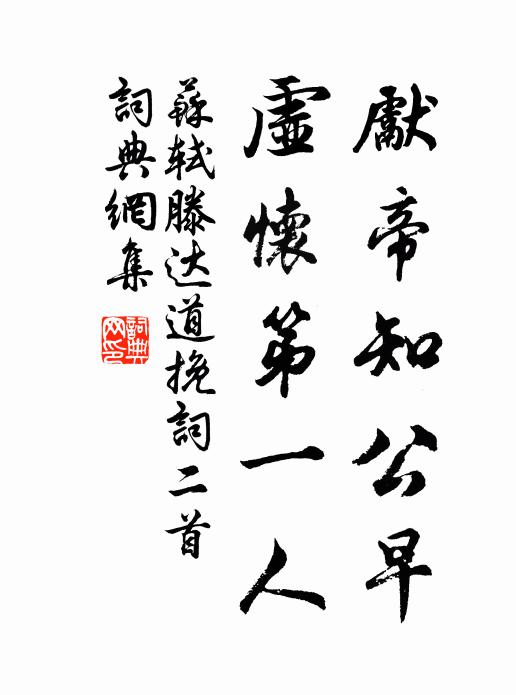 獻帝知公早
虛懷第一人
蘇軾滕达道挽詞二首
詞典網集
詞典网印